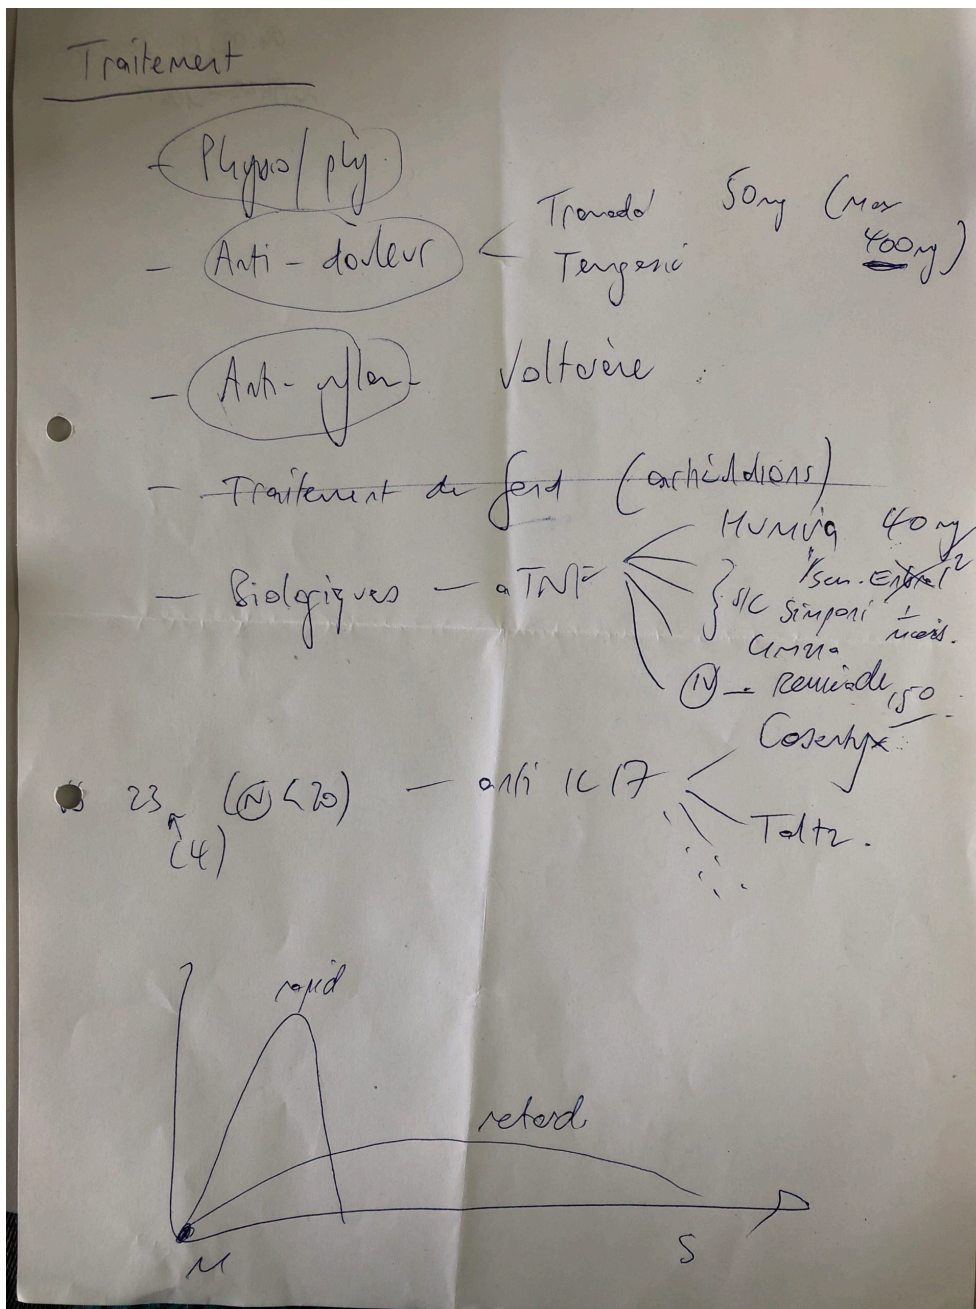 Traitement
- Physio/phy.
- Anti-douleur < Tramadol 50mg (Max 400mg)
Temgesic
- Anti-inflam- Voltarène
- Traitement de fond (
- Biologiques - aTNF Humira 40mg
1/sem. Enbrel 2
S/C Simponi 1 mois.
Cimzia
IV - Remicade
23 (N < 20) - anti IL17 Cosentyx
(4) Taltz.
rapid
retard
M S